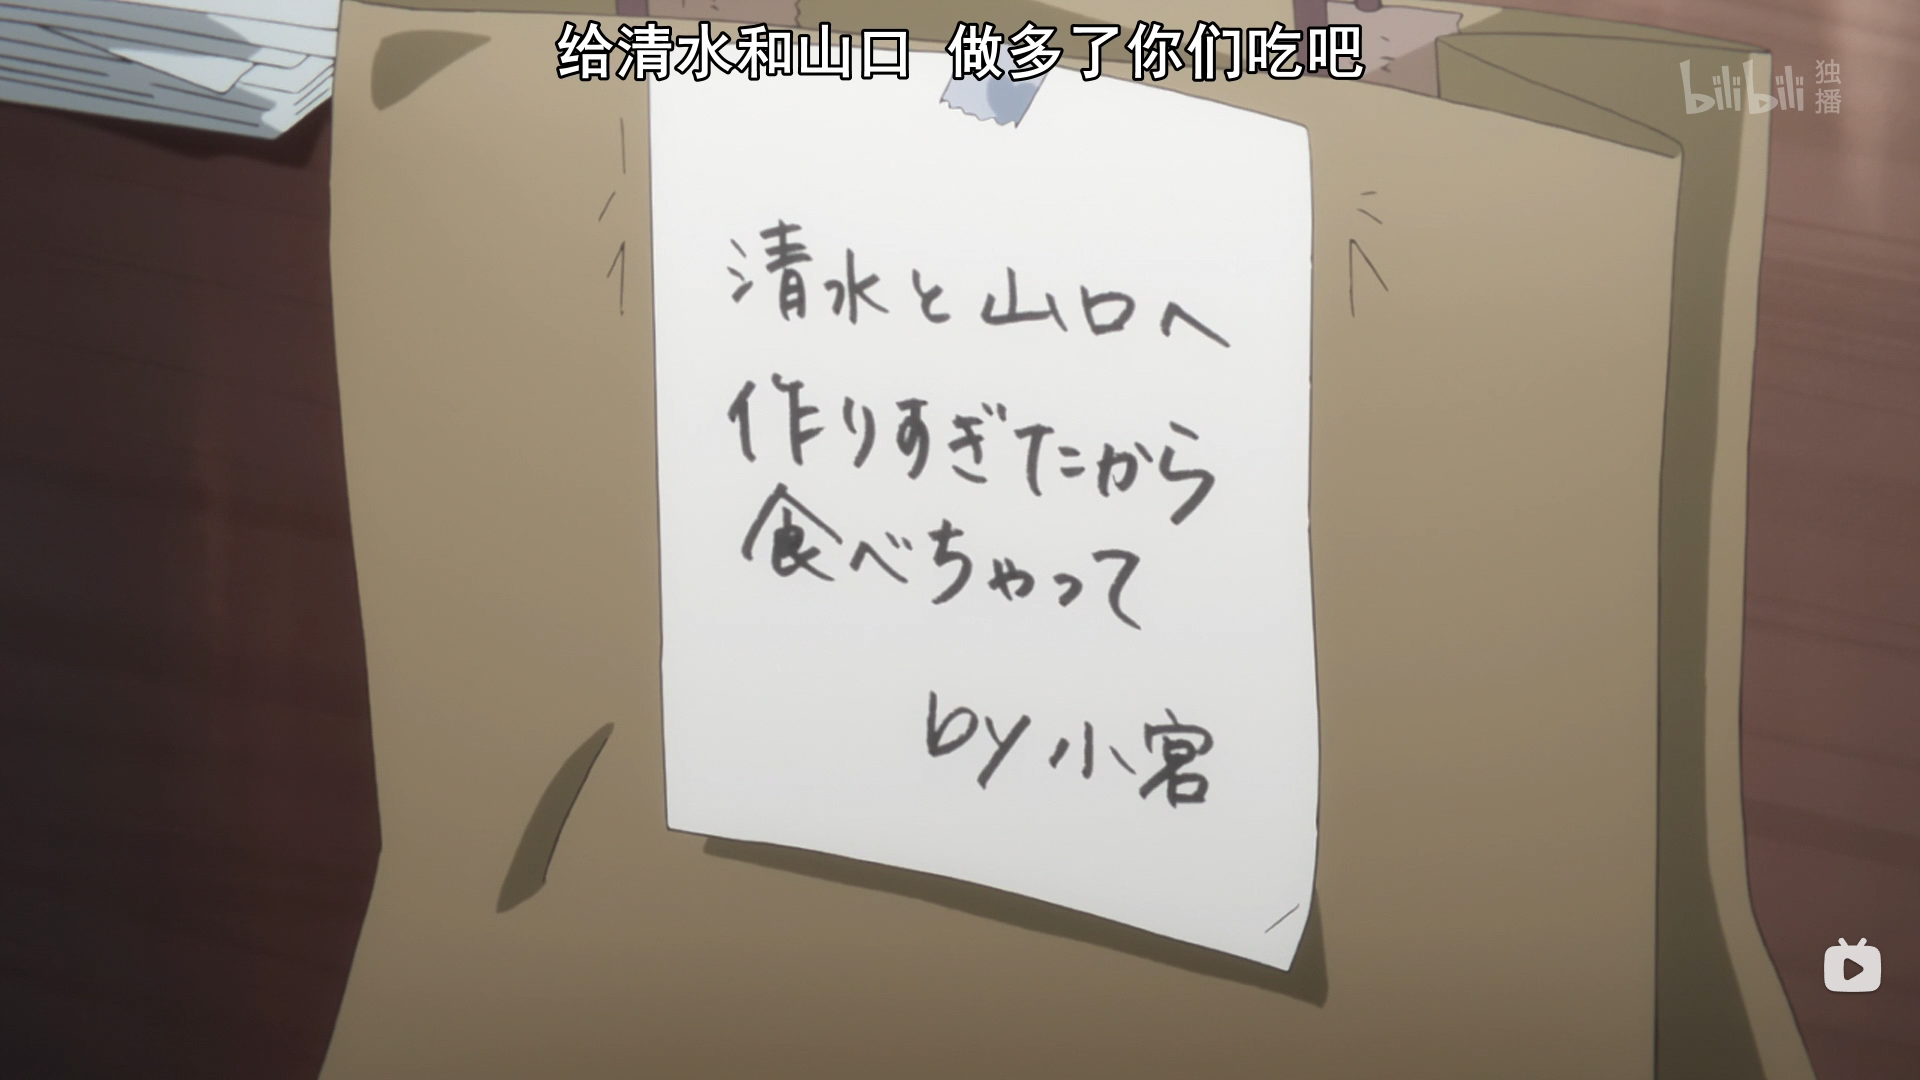 给清水和山口 做多了你们吃吧
bilibili 独播
清水と山口へ
作りすぎたから
食べちゃって
by 小宮